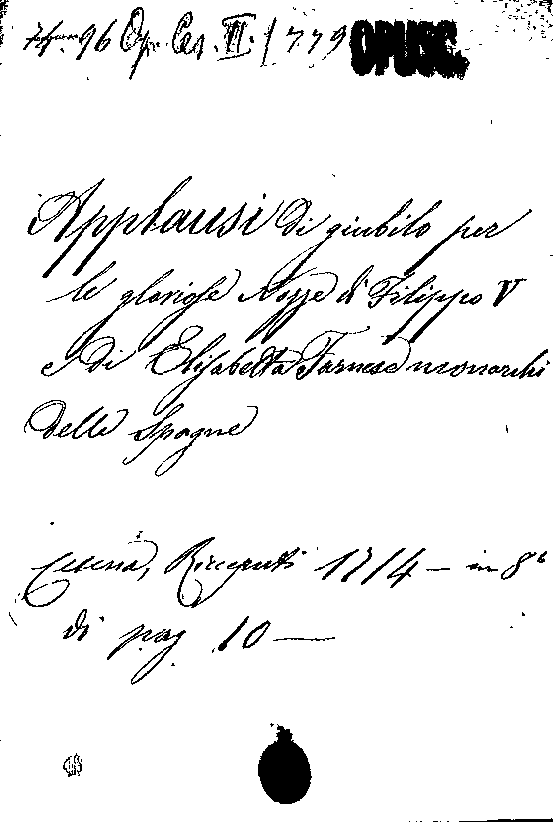 96 Op. Ces. II. 1779 OPUSC.
Applausi di giubilo per
le gloriose Nozze di Filippo V
e di Elisabetta Farnese monarchi
delle Spagne
Cesena, Ricceputi 1714 — in 8°
di pag. 10 —